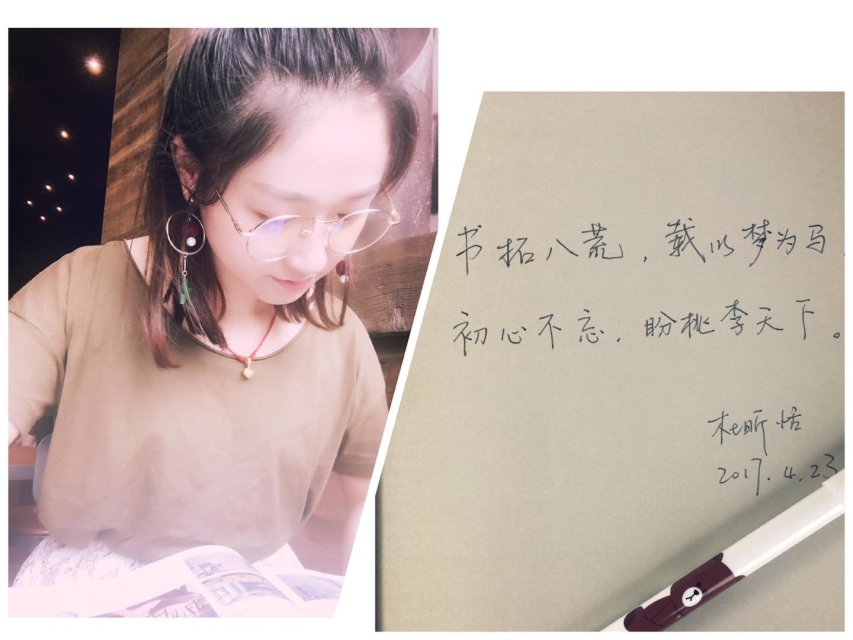 书拓八荒，载以梦为马
初心不忘，盼桃李天下。
杜昕恬
2017.4.23